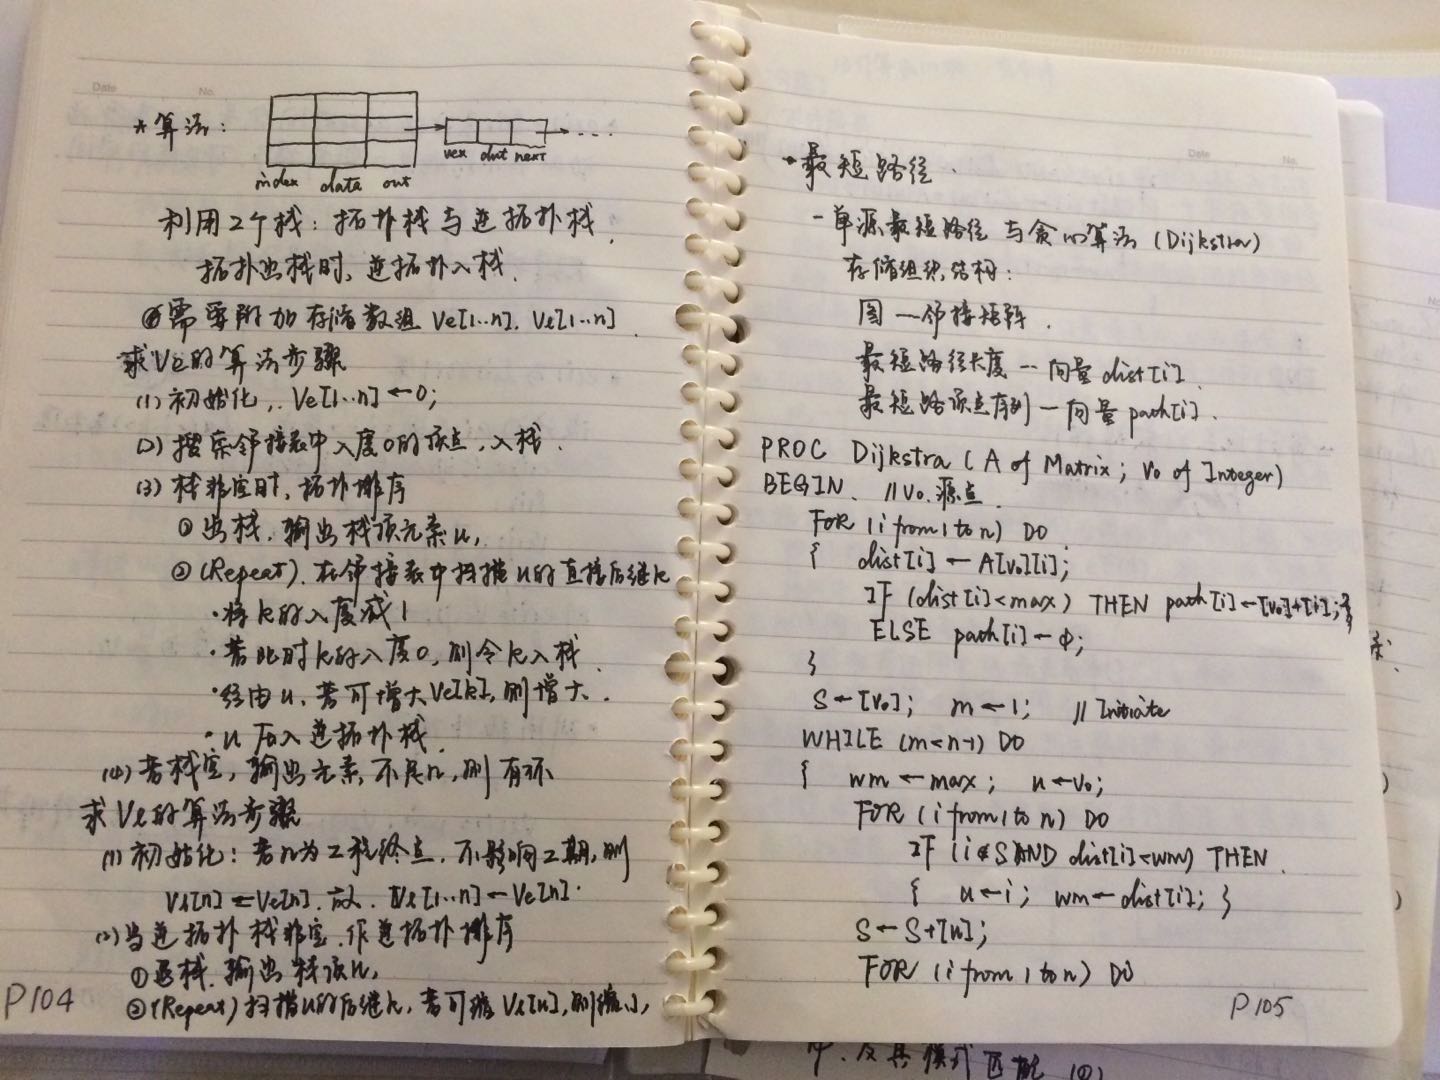 Date No.
*算法:
vex dut next
index data out
利用2个栈:拓扑栈与逆拓扑栈.
拓扑出栈时,逆拓扑入栈.
需要附加存储数组 Ve[1..n], Vl[1..n]
求Ve的算法步骤
(1) 初始化,. Ve[1..n]←0;
(2) 搜索邻接表中入度0的顶点,入栈.
(3) 栈非空时,拓扑排序
① 出栈,输出栈顶元素u,
② (Repeat). 在邻接表中扫描u的直接后继k
·将k的入度减1
·若此时k的入度0,则令k入栈.
·经由u,若可增大Ve[k],则增大.
·u压入逆拓扑栈.
(4) 若栈空,输出元素不足n,则有环
求Vl的算法步骤
(1) 初始化:若n为工程终点,不影响工期,则
Vl[n]=Ve[n].故. Vl[1..n]←Ve[n].
(2) 当逆拓扑栈非空,作逆拓扑排序
① 退栈,输出栈顶u,
② (Repeat) 扫描u的后继k,若可缩Vl[u],则缩小,
P104
Date No.
·最短路径.
-单源最短路径与贪心算法 (Dijkstra)
存储组织结构:
图 — 邻接矩阵.
最短路径长度 -- 向量 dist[i].
最短路顶点序列 — 向量 path[i].
PROC Dijkstra (A of Matrix; v0 of Integer)
BEGIN. //v0.源点
FOR (i from 1 to n) DO
{ dist[i]←A[v0][i];
IF (dist[i]<max) THEN path[i]←[v0]+[i];
ELSE path[i]←Φ;
}
S←[v0]; m←1; //Initiate
WHILE (m<n-1) DO
{ wm←max; u←v0;
FOR (i from 1 to n) DO
IF (i∉S AND dist[i]<wm) THEN
{ u←i; wm←dist[i]; }
S←S+[u];
FOR (i from 1 to n) DO
P105
及其模式匹配 (2)